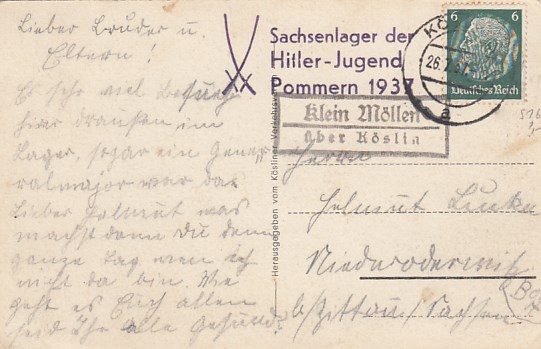 Lieber Bruder u.
Eltern!
Es sehr viel Besuch
hier draußen im
Lager, sogar ein Gene=
ralmajor war da.
Lieber Helmut was
machst denn Du den
ganze Tag wenn ich
nicht da bin. Wie
geht es Euch allen
seid Ihr alle Gesund?
Sachsenlager der
Hitler-Jugend
Pommern 1937
6 6
Deutsches Reich
KÖ
26.7.37
a
Klein Möllen
über Köslin
Herausgegeben vom Kösliner Verkehrsverein
Herrn
Helmut Linke
Niederoderwitz
b/Zittau/Sachsen